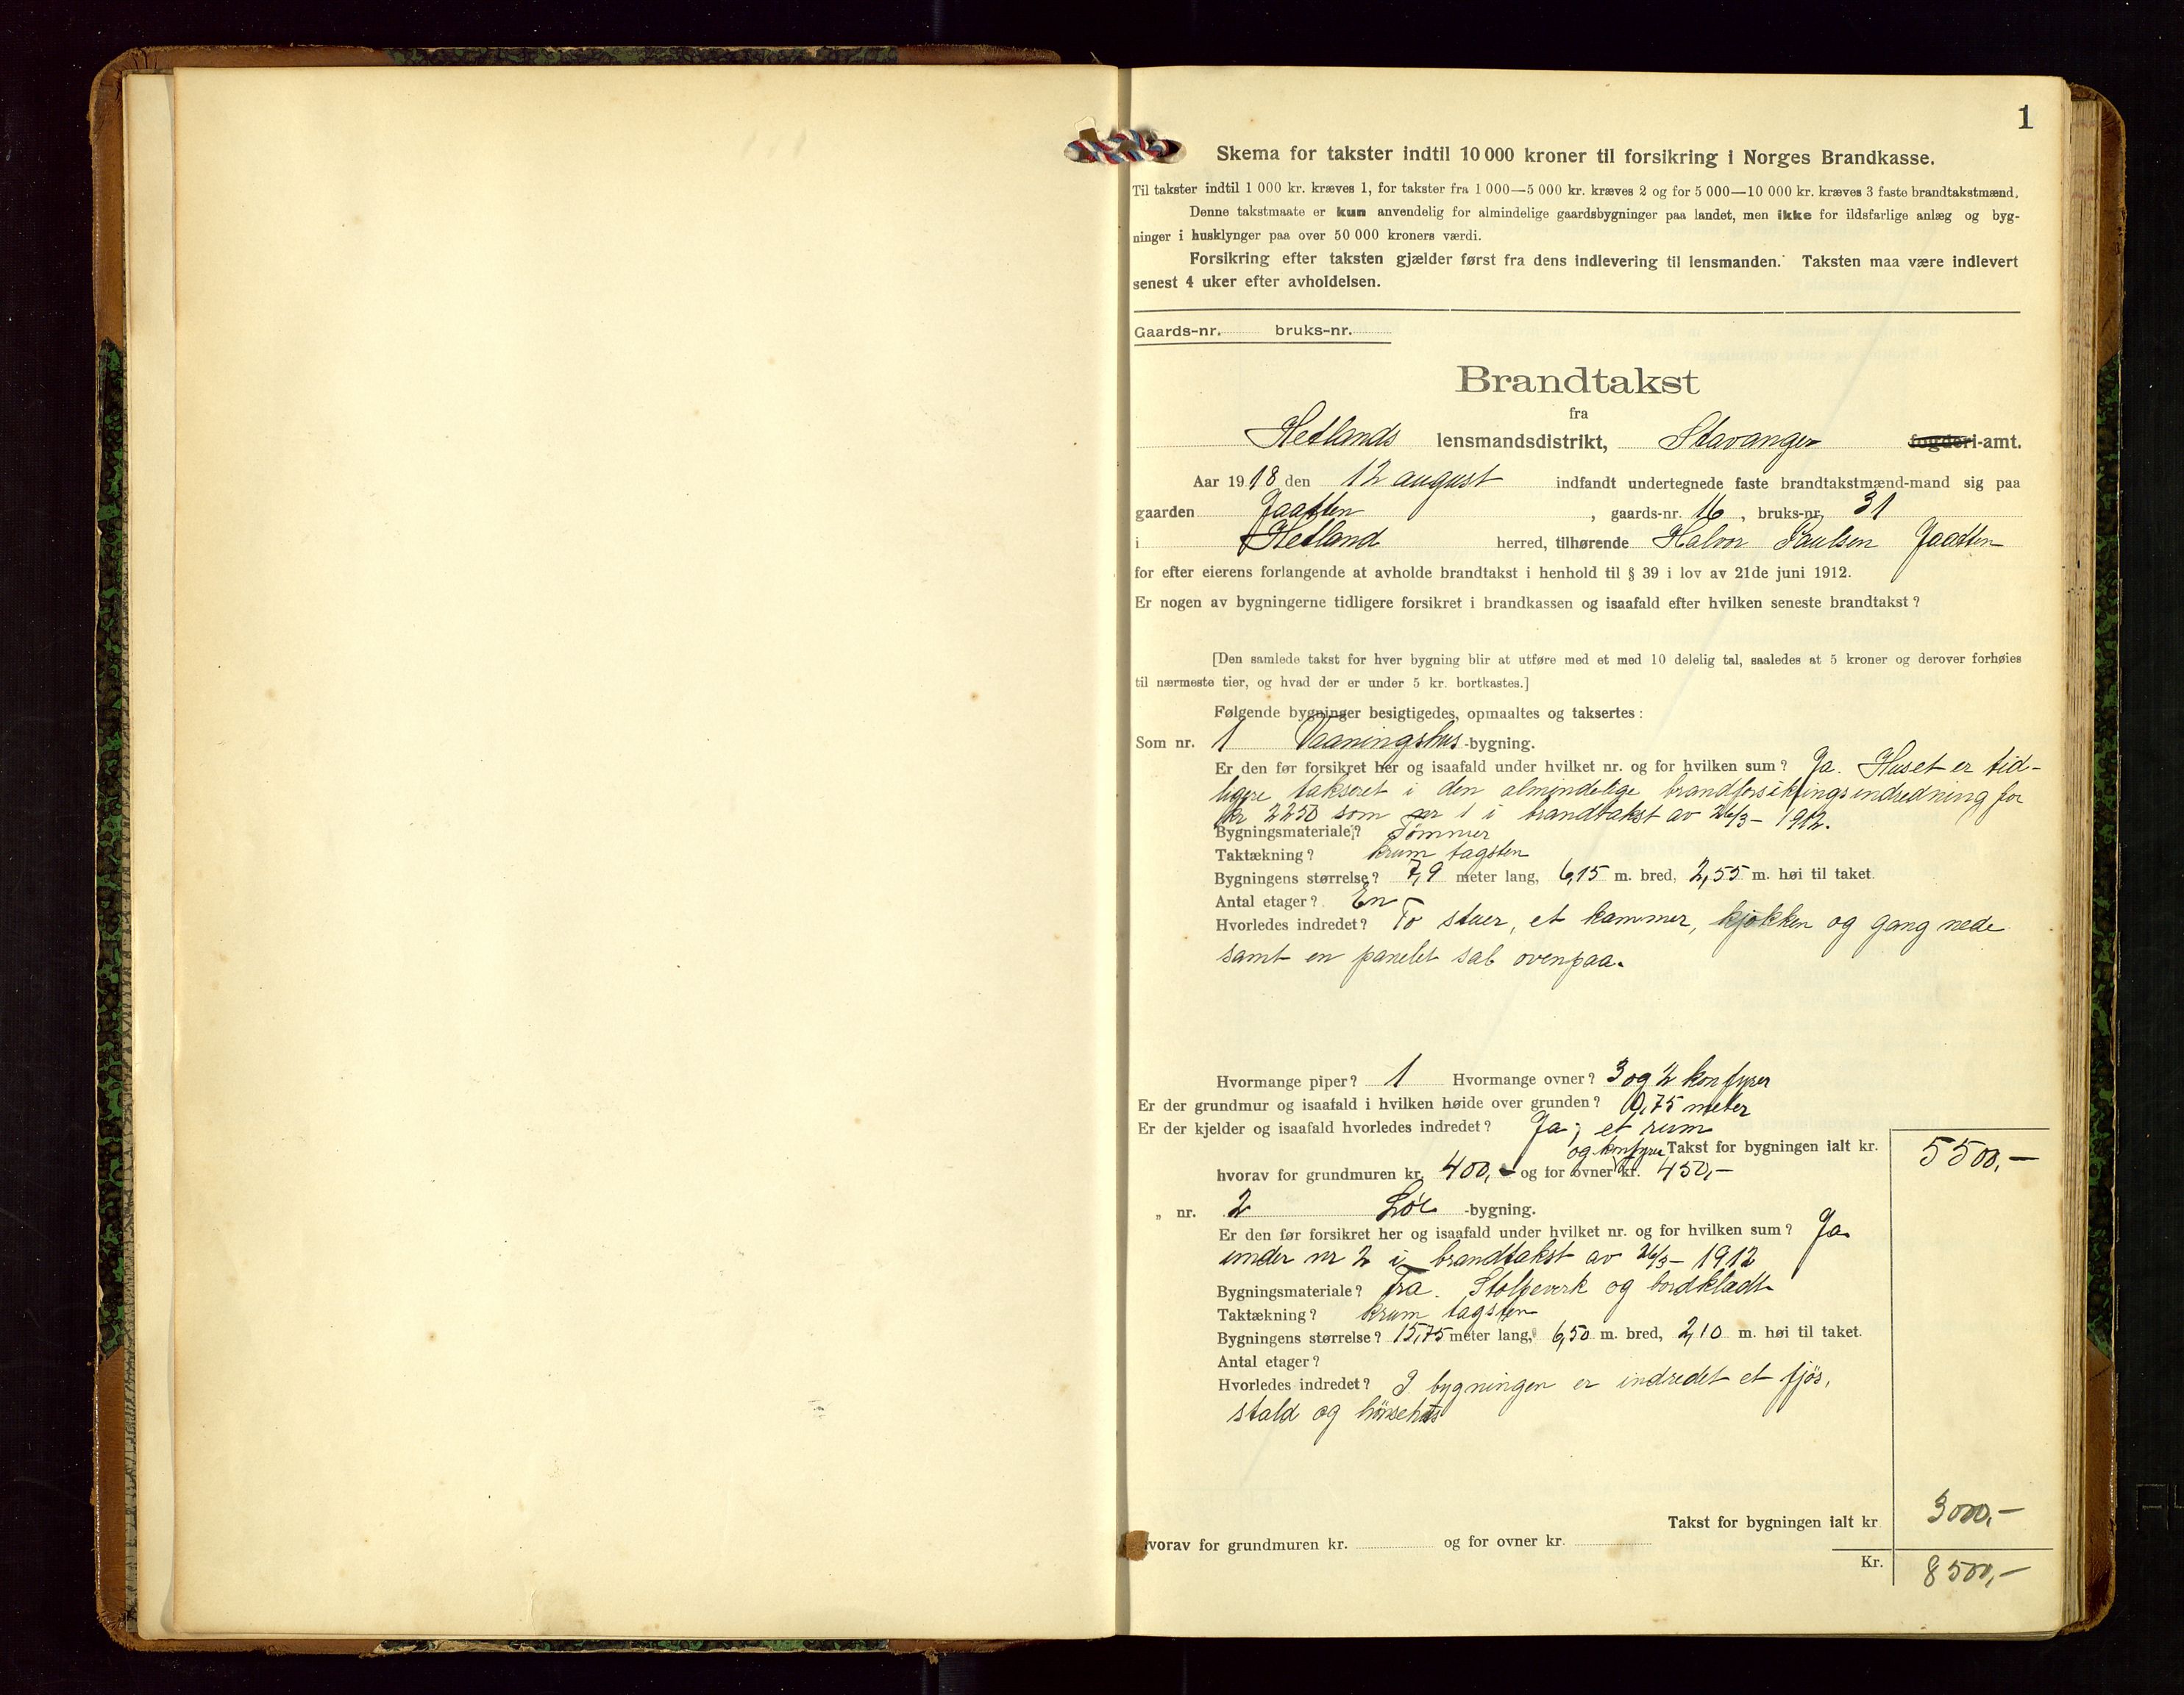 1
Skema for takster indtil 10 000 kroner til forsikring i Norges Brandkasse.
Til takster indtil 1 000 kr. kræves 1, for takster fra 1 000—5 000 kr. kræves 2 og for 5 000—10 000 kr. kræves 3 faste brandtakstmænd.
Denne takstmaate er kun anvendelig for almindelige gaardsbygninger paa landet, men ikke for ildsfarlige anlæg og byg-
ninger i husklynger paa over 50 000 kroners værdi.
Forsikring efter taksten gjælder først fra dens indlevering til lensmanden. Taksten maa være indlevert
senest 4 uker efter avholdelsen.
Gaards-nr. bruks-nr.
Brandtakst
fra
Hetlands lensmandsdistrikt, Stavanger fogderi-amt.
Aar 1918 den 12 august indfandt undertegnede faste brandtakstmænd-mand sig paa
gaarden Jaatten, gaards-nr. 16, bruks-nr. 31
i Hetland herred, tilhørende Halvor Paulsen Jaatten
for efter eierens forlangende at avholde brandtakst i henhold til § 39 i lov av 21de juni 1912.
Er nogen av bygningerne tidligere forsikret i brandkassen og isaafald efter hvilken seneste brandtakst?
[Den samlede takst for hver bygning blir at utføre med et med 10 delelig tal, saaledes at 5 kroner og derover forhøies
til nærmeste tier, og hvad der er under 5 kr. bortkastes.]
Følgende bygninger besigtigedes, opmaaltes og taksertes:
Som nr. 1 Vaaningshus-bygning.
Er den før forsikret her og isaafald under hvilket nr. og for hvilken sum? Ja. Huset er tid-
ligere takseret i den almindelige brandforsikringsindredning for
kr 2250 som nr 1 i brandtakst av 26/3 - 1912.
Bygningsmateriale? Tømmer
Taktækning? krum tagsten
Bygningens størrelse? 7,9 meter lang, 6,15 m. bred, 2,55 m. høi til taket.
Antal etager? En
Hvorledes indredet? To stuer, et kammer, kjøkken og gang nede
samt en panelet sal ovenpaa.
Hvormange piper? 1 Hvormange ovner? 3 og 2 komfyrer
Er der grundmur og isaafald i hvilken høide over grunden? 0,75 meter
Er der kjelder og isaafald hvorledes indredet? Ja; et rum
og komfyrer Takst for bygningen ialt kr. 5500,-
hvorav for grundmuren kr. 400,- og for ovner kr. 450,-
„ nr. 2 Löe-bygning.
Er den før forsikret her og isaafald under hvilket nr. og for hvilken sum? Ja
under nr 2 i brandtakst av 26/3 - 1912
Bygningsmateriale? Træ. Stolpeverk og bordklædt
Taktækning? krum tagsten
Bygningens størrelse? 15,75 meter lang, 6,50 m. bred, 2,10 m. høi til taket.
Antal etager?
Hvorledes indredet? I bygningen er indredet et fjös,
stald og hönsehus
Takst for bygningen ialt kr 3000,-
hvorav for grundmuren kr. og for ovner kr.
Kr. 8500,-